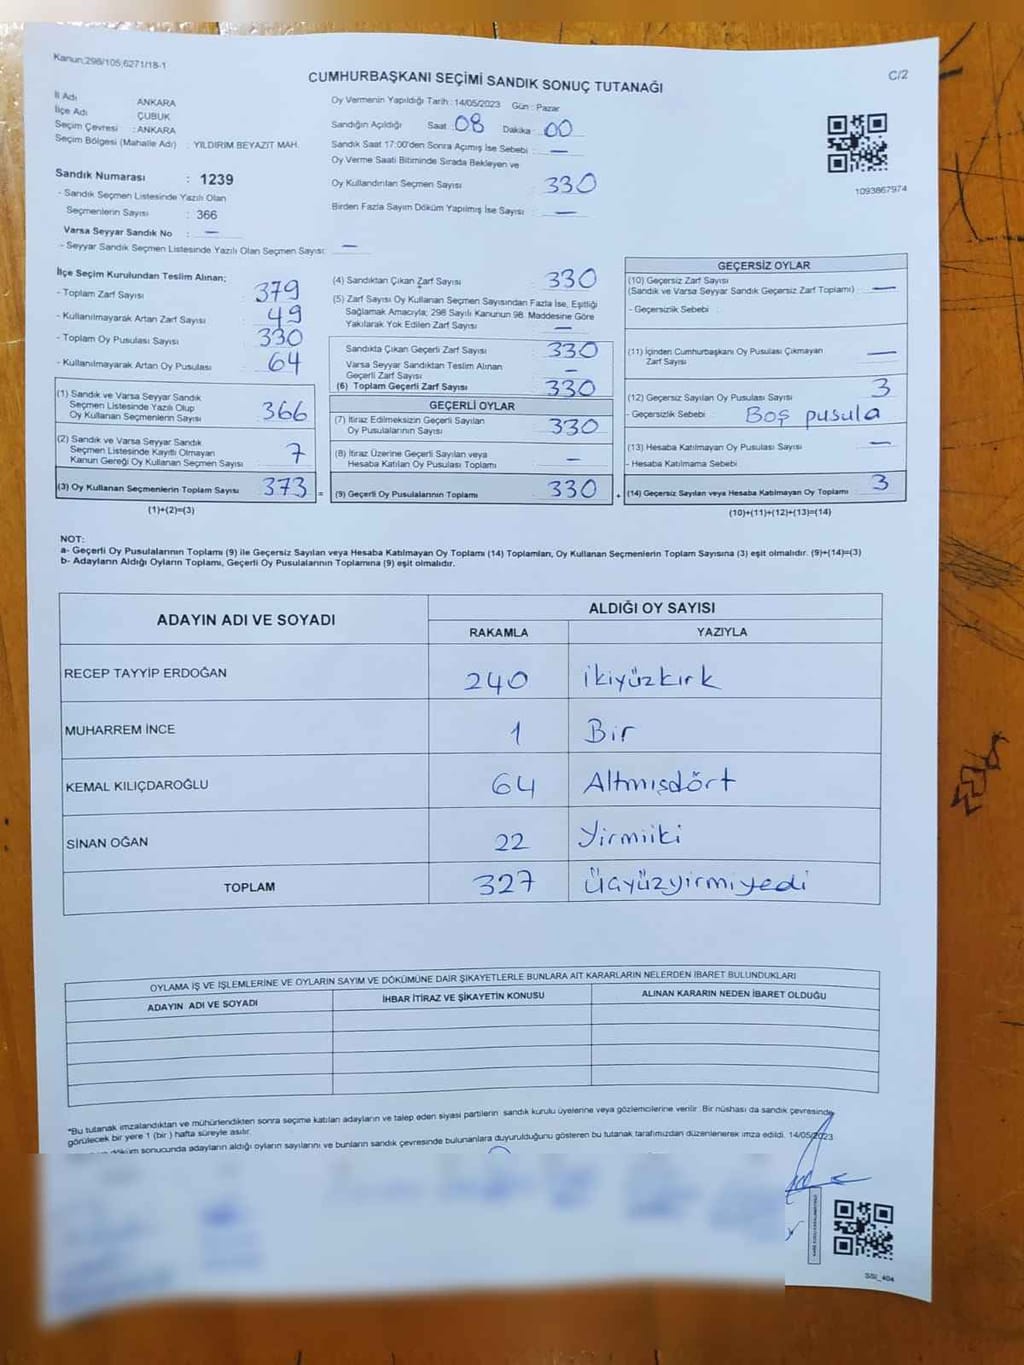 Kanun;298/105;6271/18-1
C/2
CUMHURBAŞKANI SEÇİMİ SANDIK SONUÇ TUTANAĞI
İl Adı ANKARA
İlçe Adı ÇUBUK
Seçim Çevresi : ANKARA
Seçim Bölgesi (Mahalle Adı) : YILDIRIM BEYAZIT MAH.
Sandık Numarası : 1239
- Sandık Seçmen Listesinde Yazılı Olan
Seçmenlerin Sayısı : 366
Varsa Seyyar Sandık No : —
- Seyyar Sandık Seçmen Listesinde Yazılı Olan Seçmen Sayısı: —
Oy Vermenin Yapıldığı Tarih : 14/05/2023 Gün : Pazar
Sandığın Açıldığı Saat : 08 Dakika : 00
Sandık Saat 17:00'den Sonra Açımış İse Sebebi : —
Oy Verme Saati Bitiminde Sırada Bekleyen ve
Oy Kullandırılan Seçmen Sayısı : 330
Birden Fazla Sayım Döküm Yapılmış İse Sayısı : —
1093867974
İlçe Seçim Kurulundan Teslim Alınan;
- Toplam Zarf Sayısı : 379
- Kullanılmayarak Artan Zarf Sayısı : 49
- Toplam Oy Pusulası Sayısı : 330
- Kullanılmayarak Artan Oy Pusulası : 64
(1) Sandık ve Varsa Seyyar Sandık
Seçmen Listesinde Yazılı Olup
Oy Kullanan Seçmenlerin Sayısı : 366
(2) Sandık ve Varsa Seyyar Sandık
Seçmen Listesinde Kayıtlı Olmayan
Kanun Gereği Oy Kullanan Seçmen Sayısı : 7
(3) Oy Kullanan Seçmenlerin Toplam Sayısı : 373 =
(1)+(2)=(3)
(4) Sandıktan Çıkan Zarf Sayısı : 330
(5) Zarf Sayısı Oy Kullanan Seçmen Sayısından Fazla İse, Eşitliği
Sağlamak Amacıyla; 298 Sayılı Kanunun 98. Maddesine Göre
Yakılarak Yok Edilen Zarf Sayısı : —
Sandıkta Çıkan Geçerli Zarf Sayısı : 330
Varsa Seyyar Sandıktan Teslim Alınan
Geçerli Zarf Sayısı : —
(6) Toplam Geçerli Zarf Sayısı : 330
GEÇERLİ OYLAR
(7) İtiraz Edilmeksizin Geçerli Sayılan
Oy Pusulalarının Sayısı : 330
(8) İtiraz Üzerine Geçerli Sayılan veya
Hesaba Katılan Oy Pusulası Toplamı : —
(9) Geçerli Oy Pusulalarının Toplamı : 330 +
GEÇERSİZ OYLAR
(10) Geçersiz Zarf Sayısı
(Sandık ve Varsa Seyyar Sandık Geçersiz Zarf Toplamı) : —
- Geçersizlik Sebebi :
(11) İçinden Cumhurbaşkanı Oy Pusulası Çıkmayan
Zarf Sayısı : —
(12) Geçersiz Sayılan Oy Pusulası Sayısı : 3
- Geçersizlik Sebebi : Boş pusula
(13) Hesaba Katılmayan Oy Pusulası Sayısı : —
- Hesaba Katılmama Sebebi :
(14) Geçersiz Sayılan veya Hesaba Katılmayan Oy Toplamı : 3
(10)+(11)+(12)+(13)=(14)
NOT:
a- Geçerli Oy Pusulalarının Toplamı (9) ile Geçersiz Sayılan veya Hesaba Katılmayan Oy Toplamı (14) Toplamları, Oy Kullanan Seçmenlerin Toplam Sayısına (3) eşit olmalıdır. (9)+(14)=(3)
b- Adayların Aldığı Oyların Toplamı, Geçerli Oy Pusulalarının Toplamına (9) eşit olmalıdır.
ADAYIN ADI VE SOYADI
ALDIĞI OY SAYISI
RAKAMLA YAZIYLA
RECEP TAYYİP ERDOĞAN 240 ikiyüzkırk
MUHARREM İNCE 1 Bir
KEMAL KILIÇDAROĞLU 64 Altmışdört
SİNAN OĞAN 22 Yirmiiki
TOPLAM 327 üçyüzyirmiyedi
OYLAMA İŞ VE İŞLEMLERİNE VE OYLARIN SAYIM VE DÖKÜMÜNE DAİR ŞİKAYETLERLE BUNLARA AİT KARARLARIN NELERDEN İBARET BULUNDUKLARI
ADAYIN ADI VE SOYADI
İHBAR İTİRAZ VE ŞİKAYETİN KONUSU
ALINAN KARARIN NEDEN İBARET OLDUĞU
*Bu tutanak imzalandıktan ve mühürlendikten sonra seçime katılan adayların ve talep eden siyasi partilerin sandık kurulu üyelerine veya gözlemcilerine verilir. Bir nüshası da sandık çevresinde
görülecek bir yere 1 (bir ) hafta süreyle asılır.
döküm sonucunda adayların aldığı oyların sayılarını ve bunların sandık çevresinde bulunanlara duyurulduğunu gösteren bu tutanak tarafımızdan düzenlenerek imza edildi. 14/05/2023
SSI_404